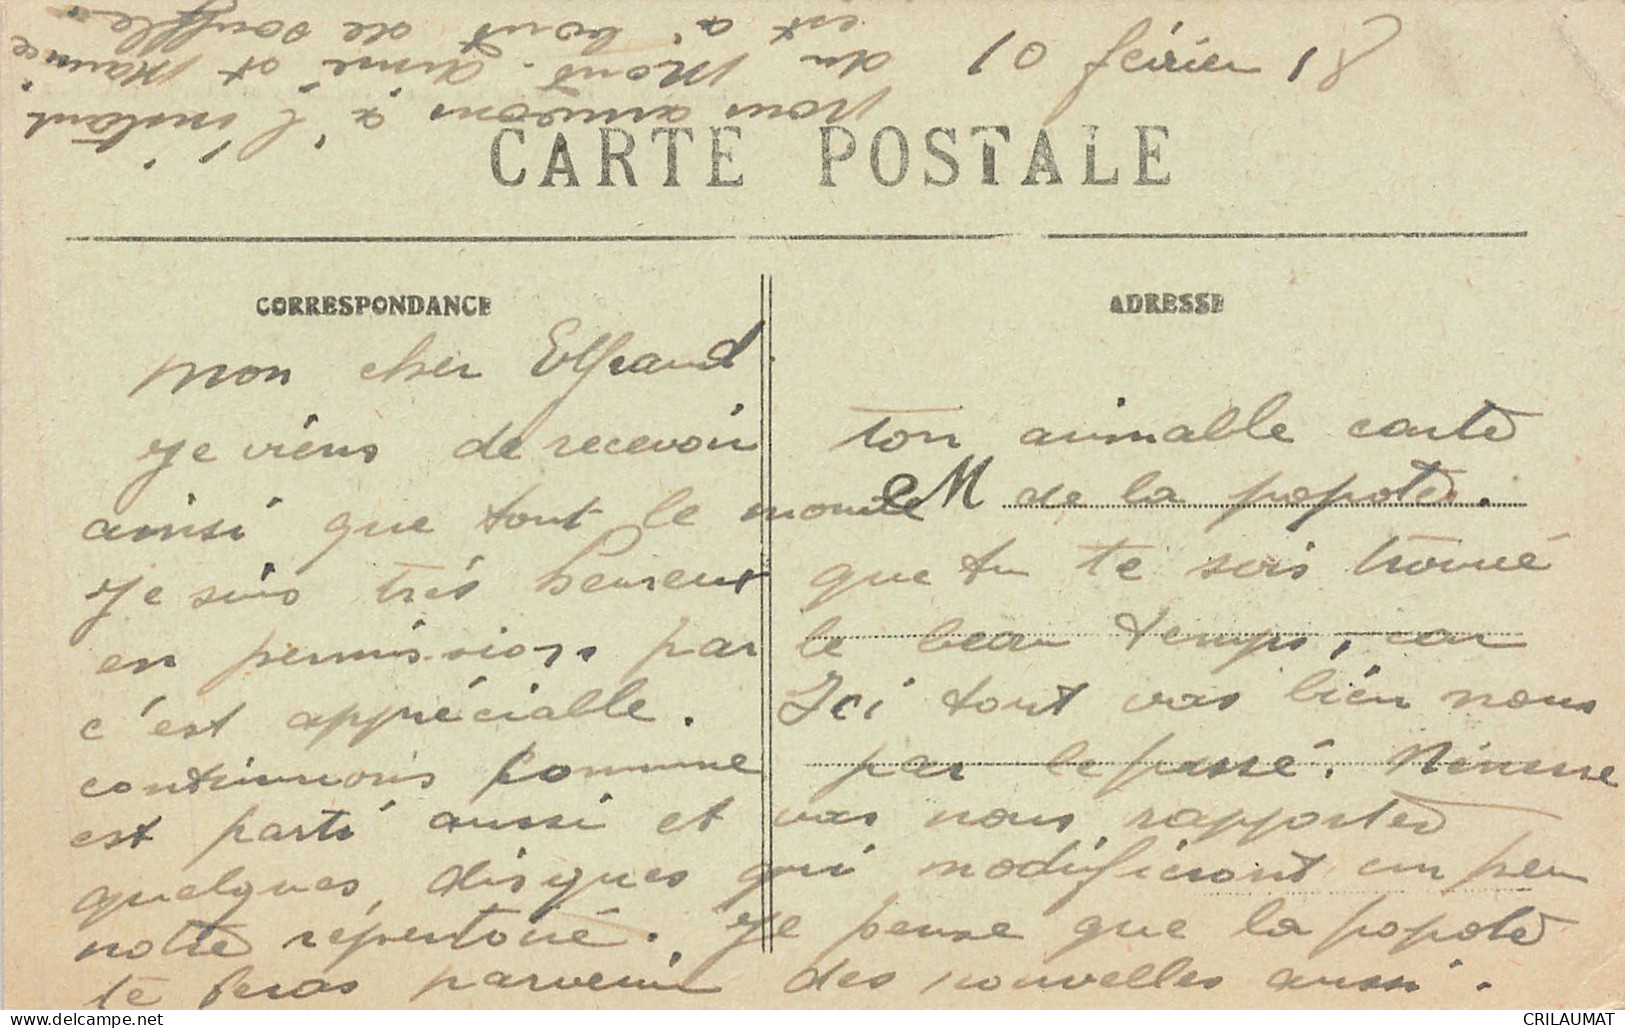 10 février 18
CARTE POSTALE
CORRESPONDANCE
ADRESSE
Mon cher
Je viens de recevoir ton aimable carte
ainsi que tout le monde de la popote.
Je suis très heureux que tu te sois trouvé
en permission par le beau temps, car
c'est appréciable. Ici tout vas bien nous
continuons comme par le passé.
est parti aussi et vas nous rapporter
quelques disques qui modifieront un peu
notre répertoire. Je pense que la popote
te feras parvenir des nouvelles aussi.
Nous arrivons à l'instant
du Mont. Aimé et Maurice
est à bout de souffle
CRILAUMAT